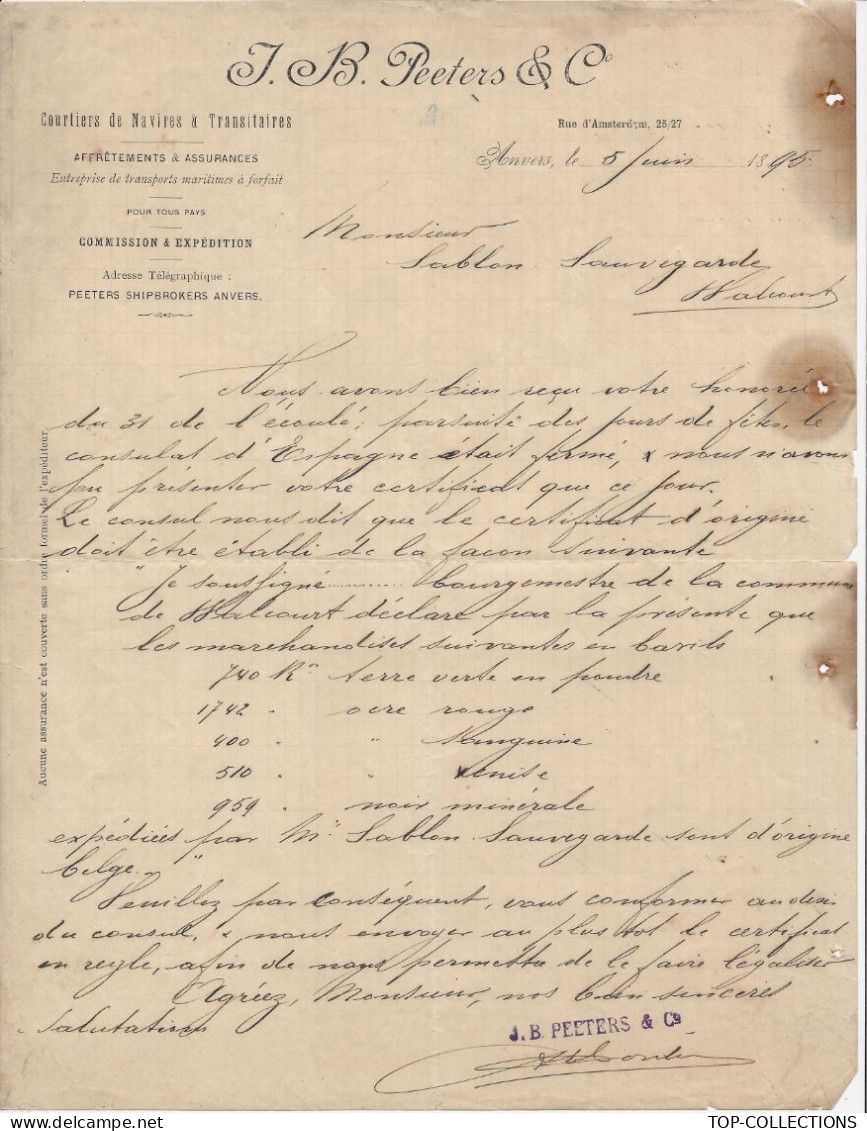 J. B. Peeters & Cº
Courtiers de Navires & Transitaires
AFFRÈTEMENTS & ASSURANCES
Entreprise de transports maritimes à forfait
POUR TOUS PAYS
COMMISSION & EXPÉDITION
Adresse Télégraphique :
PEETERS SHIPBROKERS ANVERS.
Rue d'Amsterdam, 25/27
Anvers, le 5 Juin 1895
Monsieur
Sablon Sauvegarde
Walcourt
Nous avons bien reçu votre honorée
du 31 de l'écoulé; parsuite des jours de fêtes, le
consulat d'Espagne était fermé, & nous n'avons
pu présenter votre certificat que ce jour.
Le consul nous dit que le certificat d'origine
doit être établi de la façon suivante
"Je soussigné .......... bourgemestre de la commune
de Walcourt déclare par la présente que
les marchandises suivantes en barils
740 Kº terre verte en poudre
1742 " ocre rouge
400 " " Sanguine
510 " " Venise
959 " noir minérale
expédiées par Mr Sablon Sauvegarde sont d'origine
belge. "
Veuillez par conséquent, vous conformer au désir
du consul, & nous envoyer au plus tot le certificat
en regle, afin de nous permettre de le faire légaliser
Agréez, Monsieur, nos bien sincères
salutations
J. B. PEETERS & Cº
Aucune assurance n'est couverte sans ordre formel de l'expéditeur
TOP-COLLECTIONS